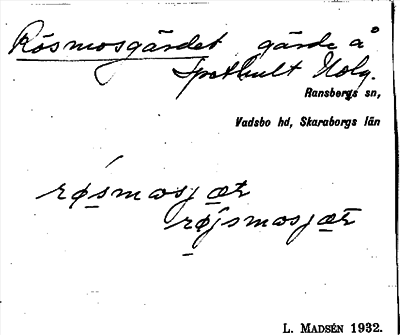 Rösmosgärdet gärde å
Spethult Holg.
Ransbergs sn,
Vadsbo hd, Skaraborgs län
røsmosjæt
røjsmosjæt
L. MADSÉN 1932.